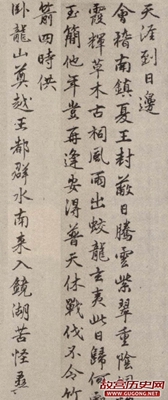 天涯到日邊
會稽南鎮夏王封蔽日騰雲紫翠重陰洞
霞輝草木古祠風雨出蛟龍玄夷此日歸何
玉簡他年豈再逢安得普天休戰伐不令竹
箭四時供
臥龍山奠越王都群水南來入鏡湖苦怪尋
故宫历史网